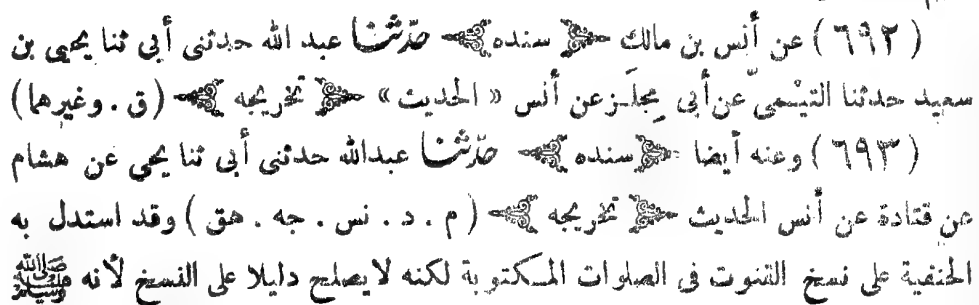 ( ٦٩٢ ) عن أنس بن مالك ﴿ سنده ﴾ حدّثنا عبد الله حدثنى أبى ثنا يحيى بن
سعيد حدثنا التيْمىّ عن أبى مِجلَز عن أنس « الحديث » ﴿ تخريجه ﴾ (ق . وغيرهما)
( ٦٩٣ ) وعنه أيضا ﴿ سنده ﴾ حدّثنا عبدالله حدثنى أبى ثنا يحيى عن هشام
عن قتادة عن أنس الحديث ﴿ تخريجه ﴾ ( م . د . نس . جه . هق ) وقد استدل به
الحنفية على نسخ القنوت فى الصلوات المكتوبة لكنه لا يصلح دليلا على النسخ لأنه ﷺ